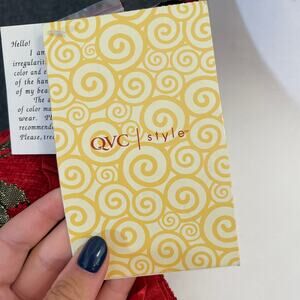 Hello!
I am
irregularit
color and e
of the han
of my bea
The a
of color ma
wear. Pl
recommende
Please, trea
QVC | style